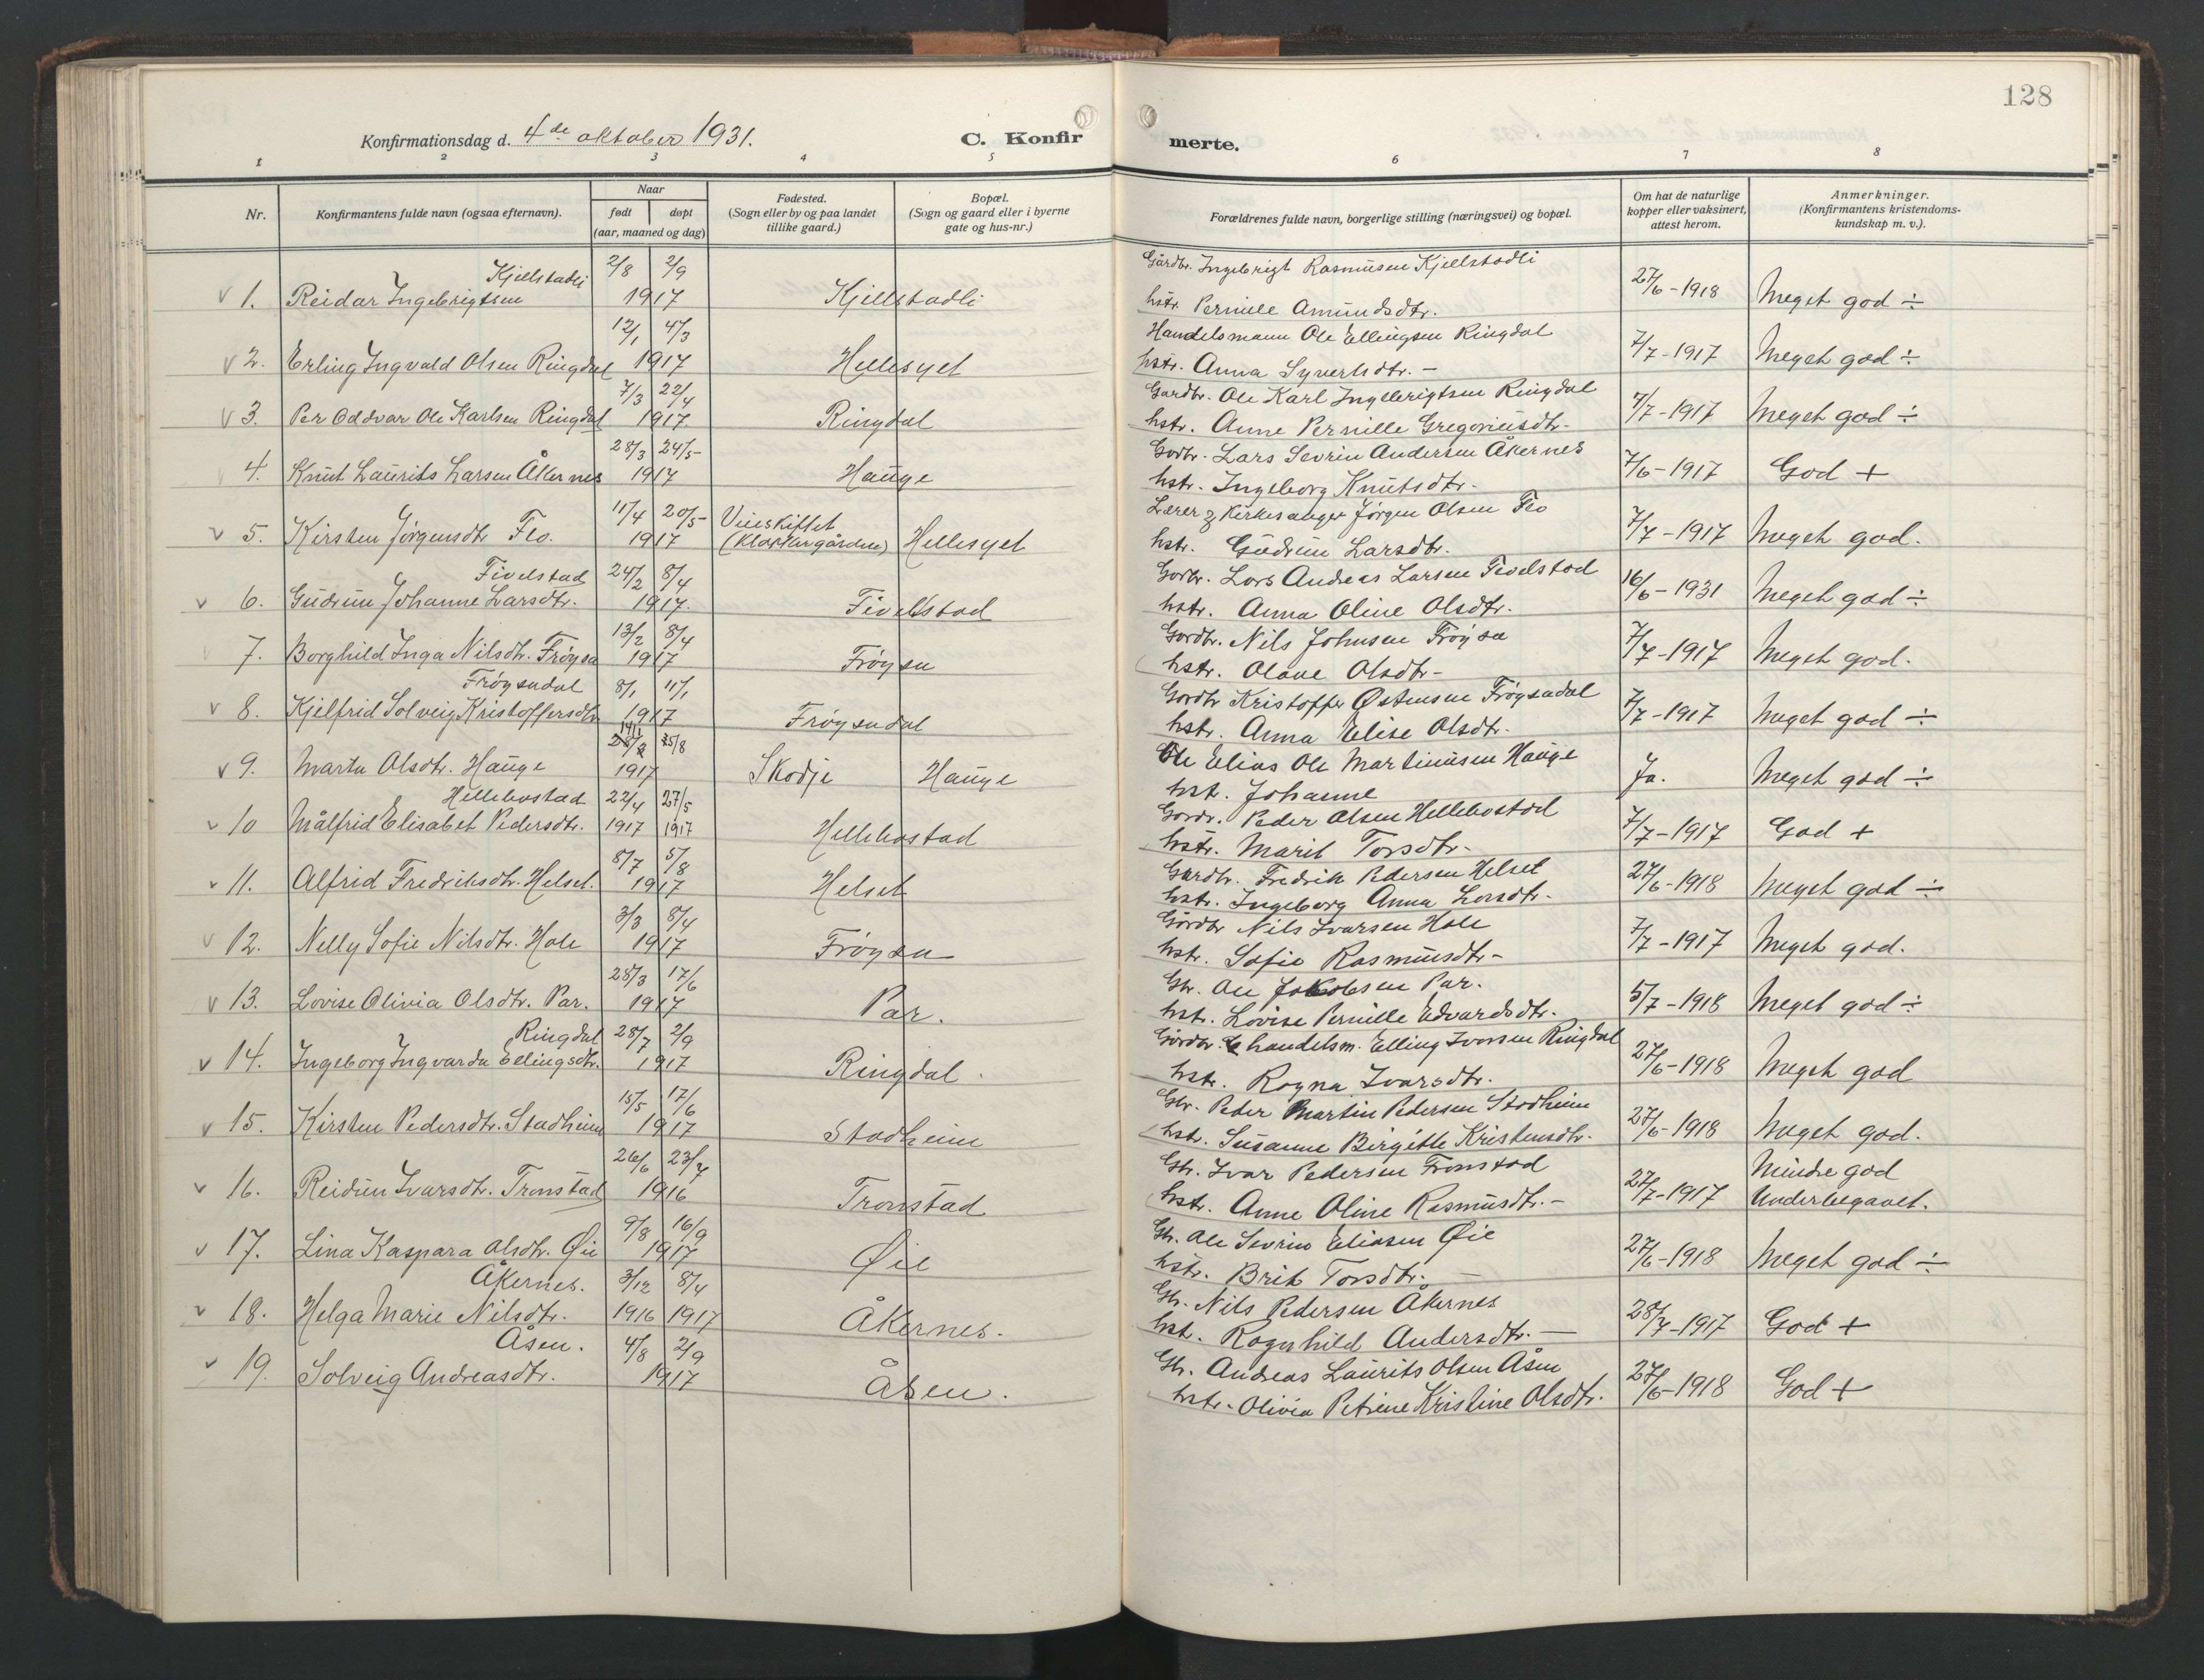 128
Konfirmationsdag d. 4de oktober 1931.
C. Konfirmerte.
1 2 3 4 5 6 7 8
Nr. | Konfirmantens fulde navn (ogsaa efternavn). | Naar født | døpt (aar, maaned og dag) | Fødested. (Sogn eller by og paa landet tillike gaard.) | Bopæl. (Sogn og gaard eller i byerne gate og hus-nr.) | Forældrenes fulde navn, borgerlige stilling (næringsvei) og bopæl. | Om hat de naturlige kopper eller vaksinert, attest herom. | Anmerkninger. (Konfirmantens kristendoms-kundskap m. v.).
1. Reidar Ingebrigtsen Kjellstadli 2/8 2/9 1917 Kjellstadli Gårdbr. Ingebrigt Rasmusen Kjellstadli
hstr. Pernille Amundsdtr. 27/6-1918 Meget god ÷
2. Erling Ingvald Olsen Ringdal 12/1 4/3 1917 Hellesyet Handelsmann Ole Ellingsen Ringdal
hstr. Anna Syvertsdtr. - 7/7-1917 Meget god ÷
3. Per Oddvar Ole Karlsen Ringdal 7/3 22/4 1917. Ringdal Gardbr. Ole Karl Ingebrigtsen Ringdal
hstr. Anne Pernille Gregoriusdtr. 7/7-1917 Meget god ÷
4. Knut Laurits Larsen Åkernes 28/3 24/5 1917 Hauge Gardbr. Lars Sevrin Andersen Åkernes
hstr. Ingeborg Knutsdtr. 7/6-1917 God +
5. Kirsten Jørgensdtr Flo. 11/4 20/5 1917 (Klokkergården) Hellesyet Lærer & Kirkesanger Jørgen Olsen Flo
hstr. Gudrun Larsdtr. 7/7-1917 Meget god.
6. Gudrun Johanne Larsdtr. Fivelstad 24/2 8/4 1917. Fivelstad Gardbr. Lars Andreas Larsen Fivelstad
hstr. Anna Oline Olsdtr. 16/6-1931 Meget god ÷
7. Borghild Inga Nilsdtr. Frøysa 13/2 8/4 1917 Frøysa Gardbr. Nils Johnsen Frøysa
hstr. Olave Olsdtr- 7/7-1917 Meget god.
8. Kjelfrid Solveig Kristoffersdtr Frøysadal 8/1 11/1 1917 Frøysadal Gardbr Kristoffer Østensen Frøysadal
hstr. Anna Elise Olsdtr. 7/7-1917 Meget god ÷
9. Marta Olsdtr. Hauge 1917 Skodje Hauge Elias Ole Martinusen Hauge
hstr. Johanne Ja. Meget god ÷
10 Målfrid Elisabet Pedersdtr. Hellebostad 22/4 1917 27/5 1917 Hellebostad Gardbr. Peder Olsen Hellebostad
hstr. Marit Torsdtr. 7/7-1917 God +
11. Alfrid Fredriksdtr. Helset. 8/7 5/8 1917 Helset Gardbr. Fredrik Pedersen Helset
hstr. Ingeborg Anna Larsdtr. 27/6-1918 Meget god ÷
12. Nelly Sofie Nilsdtr. Hole 3/3 8/4 1917 Frøysa Gårdbr Nils Ivarsen Hole
hstr. Sofie Rasmusdtr- 7/7-1917 Meget god.
13. Lovise Olivia Olsdtr. Par. 28/3 17/6 1917 Par. Gbr. Ole Jakobsen Par.
hstr. Lovise Pernille Edvardsdtr. 5/7-1918 Meget god ÷
14. Ingeborg Ingvarda Ellingsdtr. Ringdal 28/7 2/9 1917 Ringdal. Gårdbr. & handelsm. Elling Ivarsen Ringdal
hstr. Ragna Ivarsdtr. 27/6-1918 Meget god
15. Kirsten Pedersdtr. Stadheim 15/5 17/6 1917 Stadheim Gbr. Peder Martin Pedersen Stadheim
hstr. Susanne Birgitte Kristensdtr. 27/6-1918 Meget god.
16. Reidun Ivarsdtr. Tronstad 26/6 23/7 1916 Tronstad Gbr. Ivar Pedersen Tronstad
hstr. Anne Oline Rasmusdtr. - 27/7-1917 Mindre god
Underbegavet.
17. Lina Kaspara Olsdtr. Øie 9/8 16/9 1917 Øie Gbr. Ole Sevrin Eliasen Øie
hstr. Brit Torsdtr. - 27/6-1918 Meget god ÷
18. Helga Marie Nilsdtr. Åkernes. 3/12 1916 8/4 1917 Åkernes. Gbr. Nils Pedersen Åkernes
hstr. Ragnhild Andersdtr. - 28/7-1917 God +
19. Solveig Andreasdtr. Åsen. 4/8 2/9 1917 Åsen. Gbr. Andreas Laurits Olsen Åsen
hstr. Olivia Petrine Kristine Olsdtr. 27/6-1918 God +